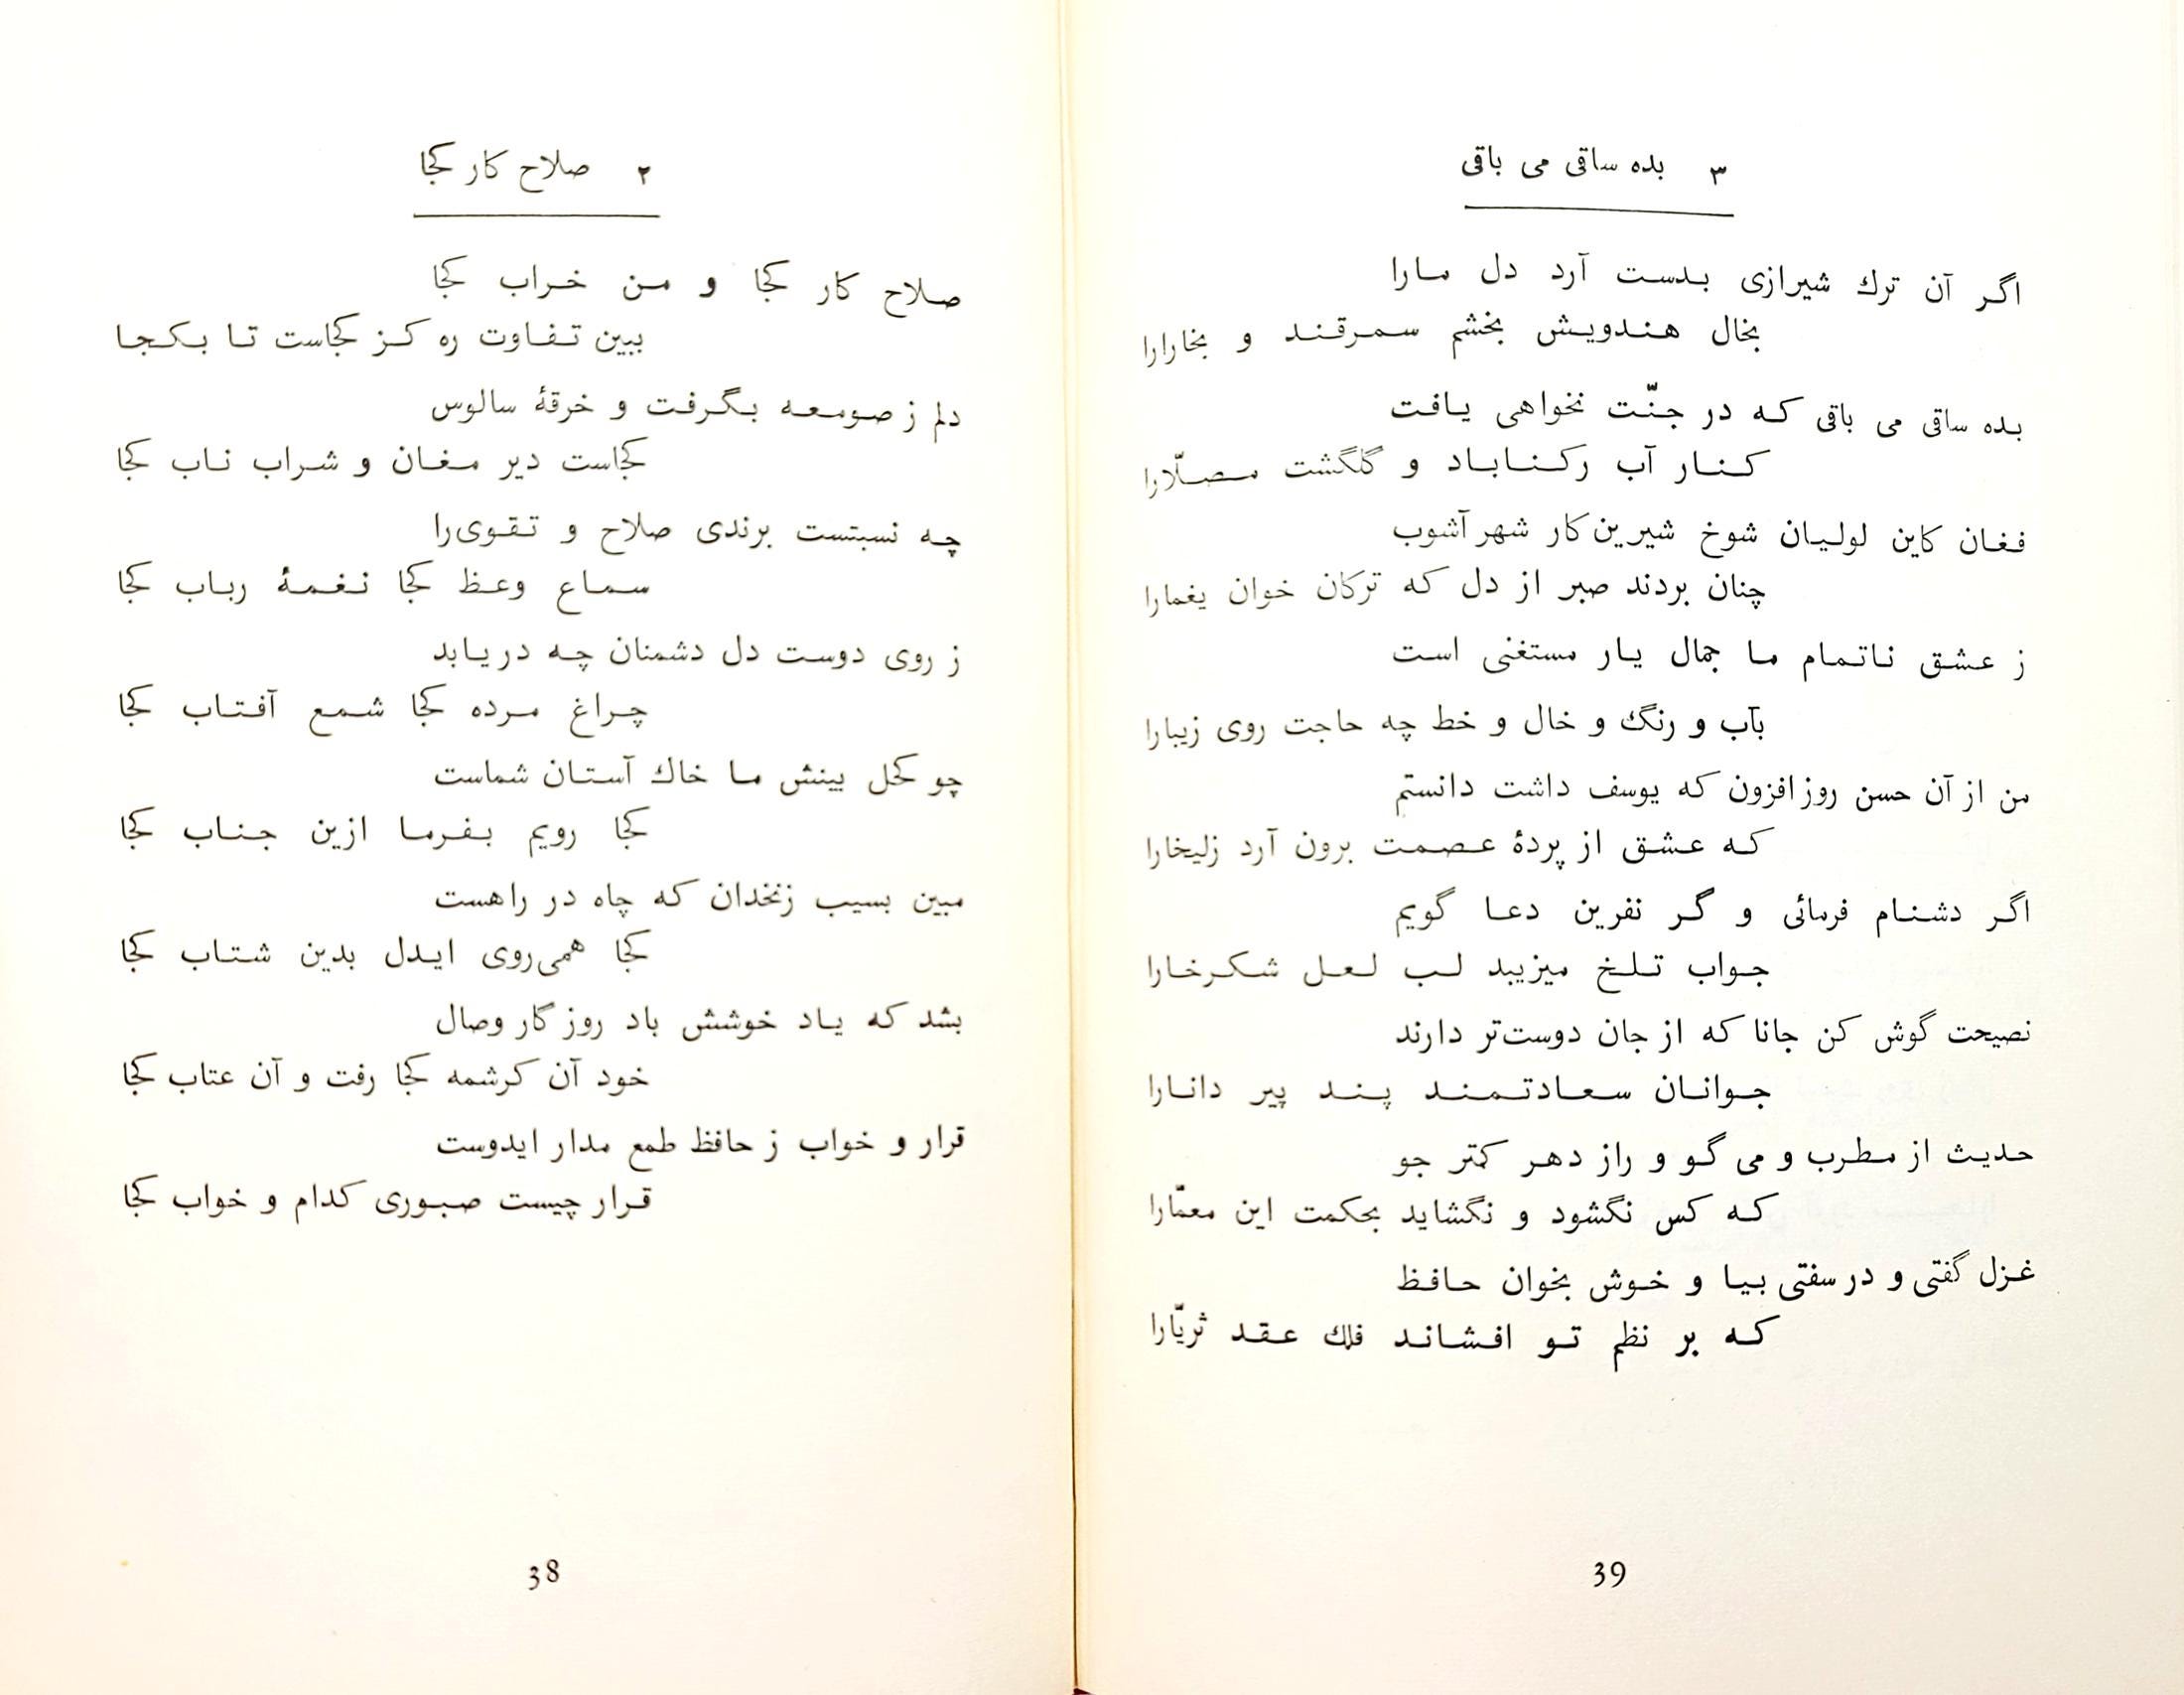 ٢ صلاح کار کجا
صلاح کار کجا و من خراب کجا
ببین تفاوت ره کز کجاست تا بکجا
دلم ز صومعه بگرفت و خرقهٔ سالوس
کجاست دیر مغان و شراب ناب کجا
چه نسبتست برندی صلاح و تقوی‌را
سماع وعظ کجا نغمهٔ رباب کجا
ز روی دوست دل دشمنان چه دریابد
چراغ مرده کجا شمع آفتاب کجا
چو کحل بینش ما خاك آستان شماست
کجا رویم بفرما ازین جناب کجا
مبین بسیب زنخدان که چاه در راهست
کجا همی‌روی ایدل بدین شتاب کجا
بشد که یاد خوشش باد روزگار وصال
خود آن کرشمه کجا رفت و آن عتاب کجا
قرار و خواب ز حافظ طمع مدار ایدوست
قرار چیست صبوری کدام و خواب کجا
38
٣ بده ساقی می باقی
اگر آن ترك شیرازی بدست آرد دل مارا
بخال هندویش بخشم سمرقند و بخارارا
بده ساقی می باقی که در جنّت نخواهی یافت
کنار آب رکناباد و گلگشت مصلّارا
فغان کاین لولیان شوخ شیرین‌کار شهرآشوب
چنان بردند صبر از دل که ترکان خوان یغمارا
ز عشق ناتمام ما جمال یار مستغنی است
بآب و رنگ و خال و خط چه حاجت روی زیبارا
من از آن حسن روزافزون که یوسف داشت دانستم
که عشق از پردهٔ عصمت برون آرد زلیخارا
اگر دشنام فرمائی و گر نفرین دعا گویم
جواب تلخ میزیبد لب لعل شکرخارا
نصیحت گوش کن جانا که از جان دوست‌تر دارند
جوانان سعادتمند پند پیر دانارا
حدیث از مطرب و می گو و راز دهر کمتر جو
که کس نگشود و نگشاید بحکمت این معمّارا
غزل گفتی و در سفتی بیا و خوش بخوان حافظ
که بر نظم تو افشاند فلك عقد ثریّارا
39